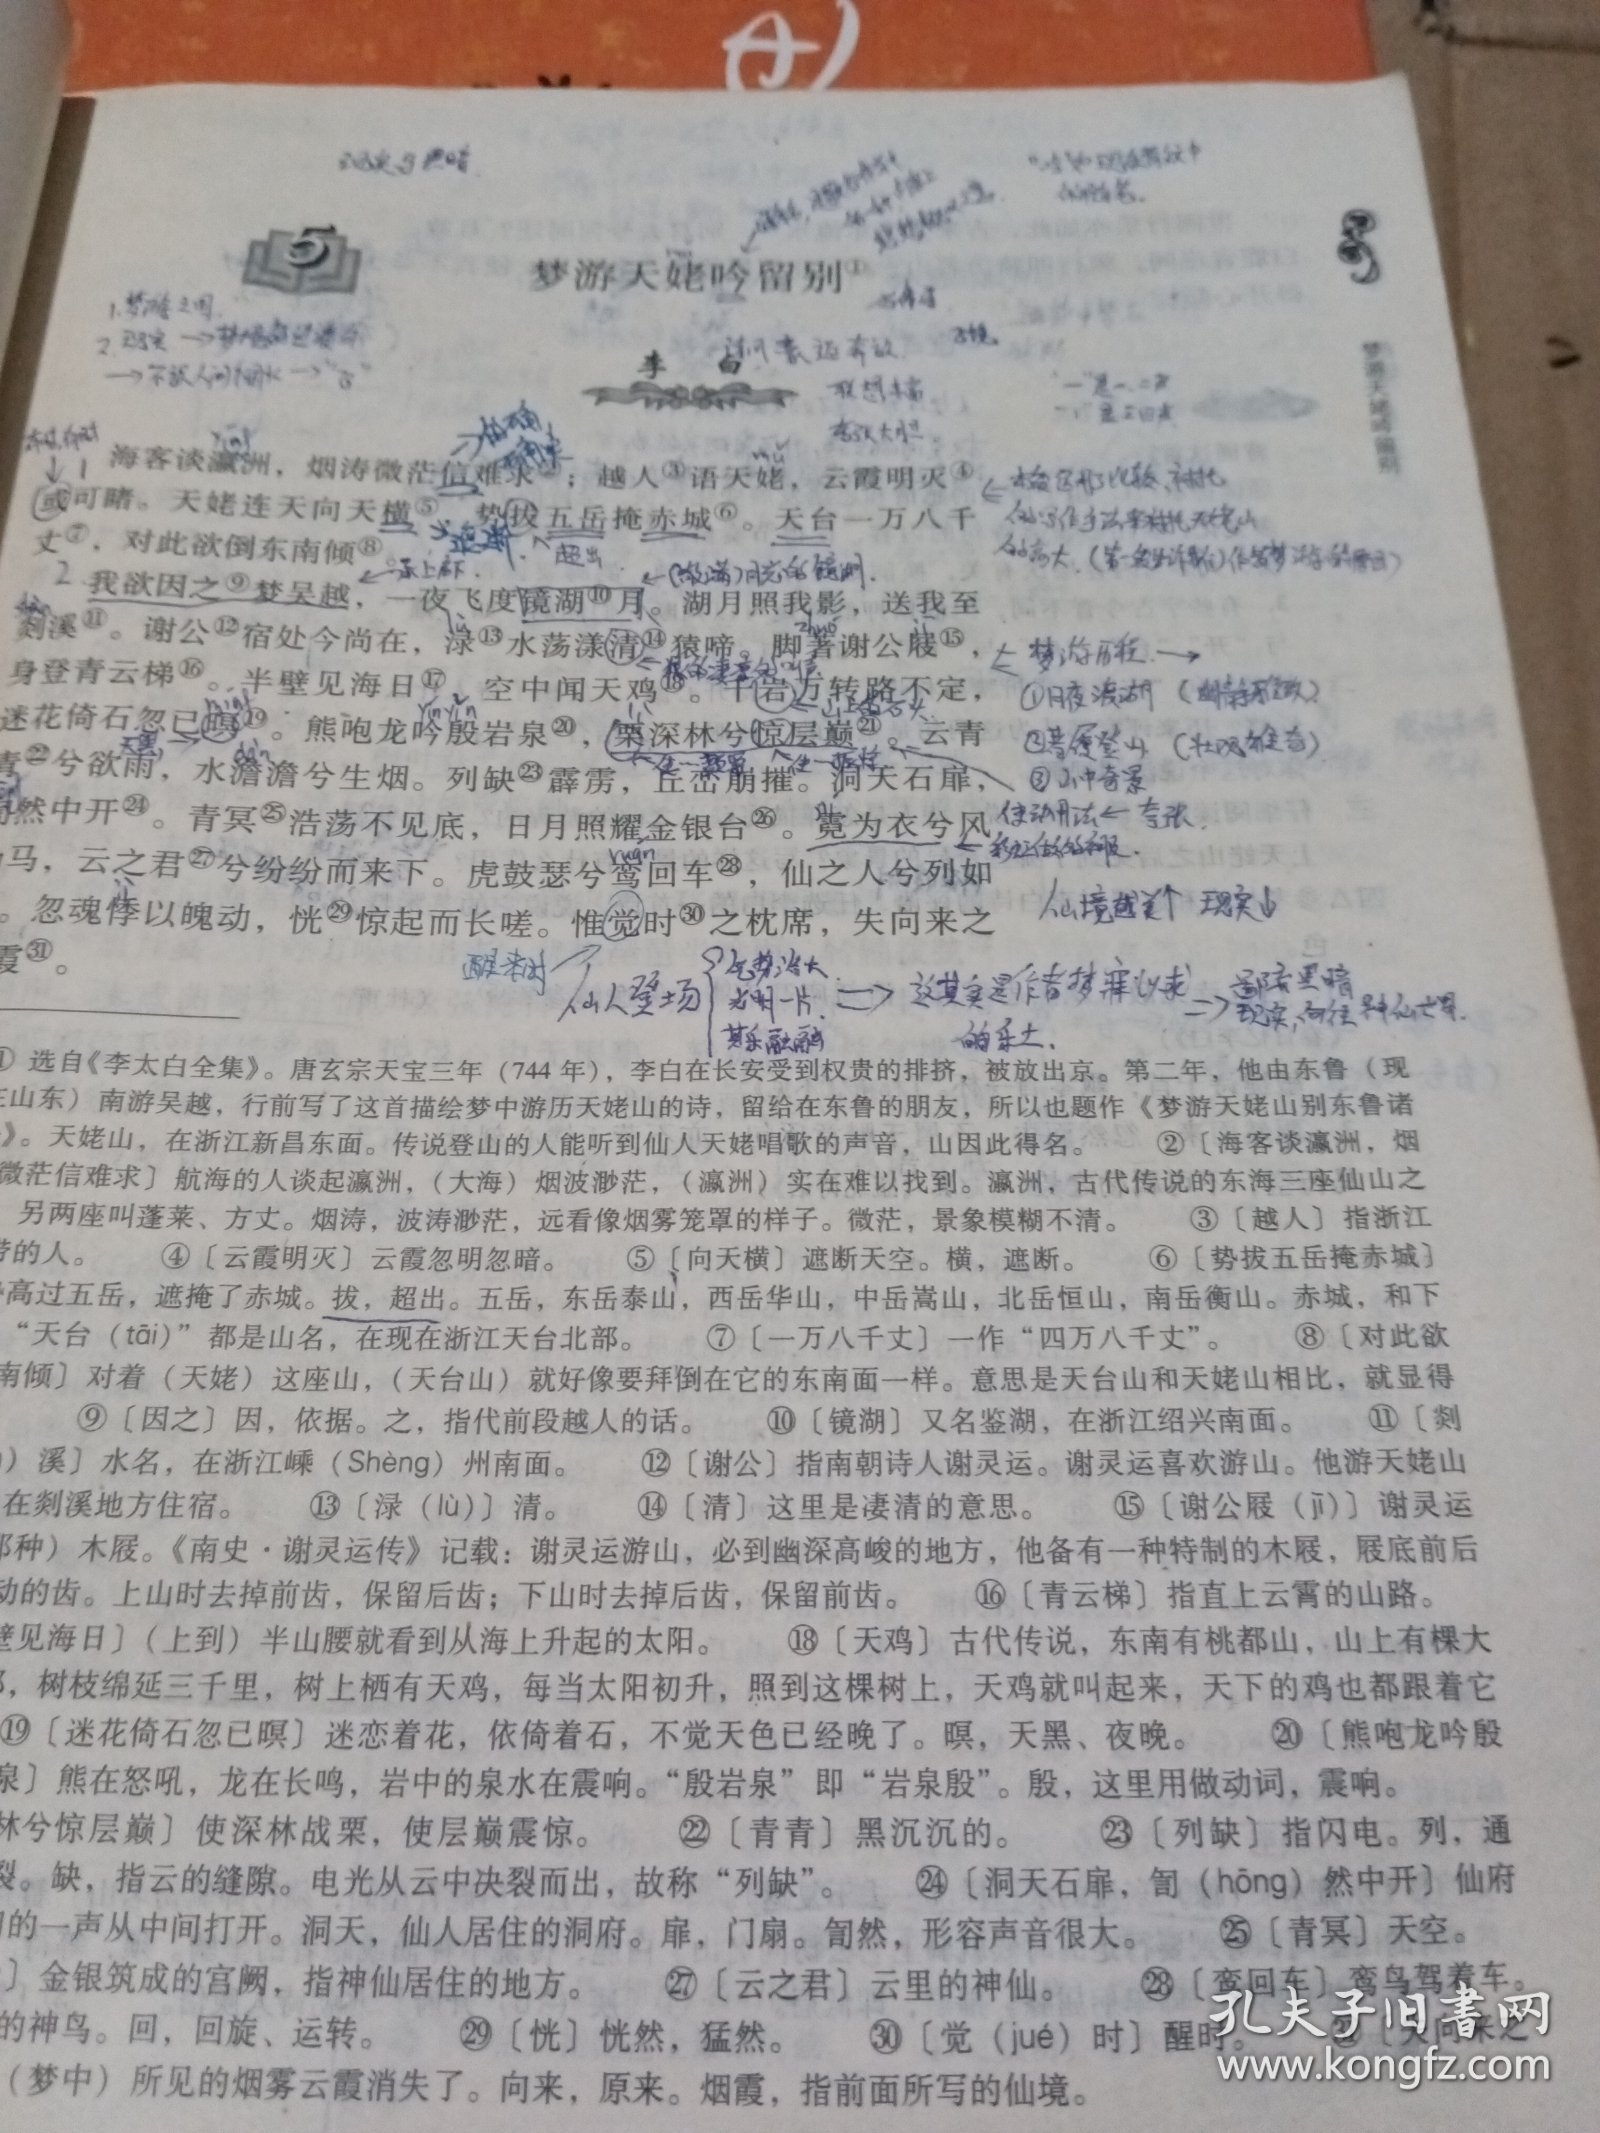 5
梦游天姥吟留别①
李白
梦游天姥吟留别
海客谈瀛洲，烟涛微茫信难求②；越人③语天姥，云霞明灭④
或可睹。天姥连天向天横⑤，势拔五岳掩赤城⑥。天台一万八千
丈⑦，对此欲倒东南倾⑧。
我欲因之⑨梦吴越，一夜飞度镜湖⑩月。湖月照我影，送我至
剡溪⑪。谢公⑫宿处今尚在，渌⑬水荡漾清⑭猿啼。脚著谢公屐⑮，
身登青云梯⑯。半壁见海日⑰，空中闻天鸡⑱。千岩万转路不定，
迷花倚石忽已暝⑲。熊咆龙吟殷岩泉⑳，栗深林兮惊层巅㉑。云青
青㉒兮欲雨，水澹澹兮生烟。列缺㉓霹雳，丘峦崩摧。洞天石扉，
訇然中开㉔。青冥㉕浩荡不见底，日月照耀金银台㉖。霓为衣兮风
马，云之君㉗兮纷纷而来下。虎鼓瑟兮鸾回车㉘，仙之人兮列如
。忽魂悸以魄动，恍㉙惊起而长嗟。惟觉时㉚之枕席，失向来之
霞㉛。
遮断
超出
承上启下
梦游历程
①月夜渡湖
③山中奇景
使动用法←夸张
醒来时
仙人登场
气势浩大
光明一片
其乐融融
这其实是作者梦寐以求
的乐土.
鄙弃黑暗
现实,向往神仙世界.
① 选自《李太白全集》。唐玄宗天宝三年（744 年），李白在长安受到权贵的排挤，被放出京。第二年，他由东鲁（现
在山东）南游吴越，行前写了这首描绘梦中游历天姥山的诗，留给在东鲁的朋友，所以也题作《梦游天姥山别东鲁诸
》。天姥山，在浙江新昌东面。传说登山的人能听到仙人天姥唱歌的声音，山因此得名。 ②〔海客谈瀛洲，烟
微茫信难求〕航海的人谈起瀛洲，（大海）烟波渺茫，（瀛洲）实在难以找到。瀛洲，古代传说的东海三座仙山之
另两座叫蓬莱、方丈。烟涛，波涛渺茫，远看像烟雾笼罩的样子。微茫，景象模糊不清。 ③〔越人〕指浙江
带的人。 ④〔云霞明灭〕云霞忽明忽暗。 ⑤〔向天横〕遮断天空。横，遮断。 ⑥〔势拔五岳掩赤城〕
高过五岳，遮掩了赤城。拔，超出。五岳，东岳泰山，西岳华山，中岳嵩山，北岳恒山，南岳衡山。赤城，和下
“天台（tāi）”都是山名，在现在浙江天台北部。 ⑦〔一万八千丈〕一作“四万八千丈”。 ⑧〔对此欲
南倾〕对着（天姥）这座山，（天台山）就好像要拜倒在它的东南面一样。意思是天台山和天姥山相比，就显得
⑨〔因之〕因，依据。之，指代前段越人的话。 ⑩〔镜湖〕又名鉴湖，在浙江绍兴南面。 ⑪〔剡
）溪〕水名，在浙江嵊（Shèng）州南面。 ⑫〔谢公〕指南朝诗人谢灵运。谢灵运喜欢游山。他游天姥山
在剡溪地方住宿。 ⑬〔渌（lù）〕清。 ⑭〔清〕这里是凄清的意思。 ⑮〔谢公屐（jī）〕谢灵运
那种）木屐。《南史·谢灵运传》记载：谢灵运游山，必到幽深高峻的地方，他备有一种特制的木屐，屐底前后
动的齿。上山时去掉前齿，保留后齿；下山时去掉后齿，保留前齿。 ⑯〔青云梯〕指直上云霄的山路。
壁见海日〕（上到）半山腰就看到从海上升起的太阳。 ⑱〔天鸡〕古代传说，东南有桃都山，山上有棵大
，树枝绵延三千里，树上栖有天鸡，每当太阳初升，照到这棵树上，天鸡就叫起来，天下的鸡也都跟着它
⑲〔迷花倚石忽已暝〕迷恋着花，依倚着石，不觉天色已经晚了。暝，天黑、夜晚。 ⑳〔熊咆龙吟殷
泉〕熊在怒吼，龙在长鸣，岩中的泉水在震响。“殷岩泉”即“岩泉殷”。殷，这里用做动词，震响。
林兮惊层巅〕使深林战栗，使层巅震惊。 ㉒〔青青〕黑沉沉的。 ㉓〔列缺〕指闪电。列，通
裂。缺，指云的缝隙。电光从云中决裂而出，故称“列缺”。 ㉔〔洞天石扉，訇（hōng）然中开〕仙府
的一声从中间打开。洞天，仙人居住的洞府。扉，门扇。訇然，形容声音很大。 ㉕〔青冥〕天空。
〕金银筑成的宫阙，指神仙居住的地方。 ㉗〔云之君〕云里的神仙。 ㉘〔鸾回车〕鸾鸟驾着车。
的神鸟。回，回旋、运转。 ㉙〔恍〕恍然，猛然。 ㉚〔觉（jué）时〕醒时。 ㉛〔失向来之
（梦中）所见的烟雾云霞消失了。向来，原来。烟霞，指前面所写的仙境。
孔夫子旧书网
www.kongfz.com